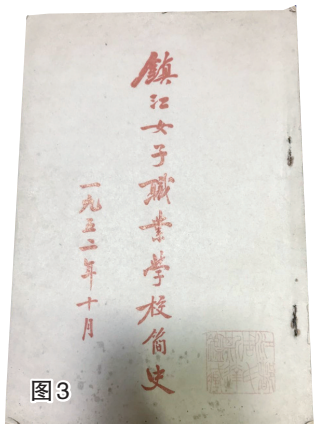 鎮江女子職業學校简史
一九五二年十月
图3